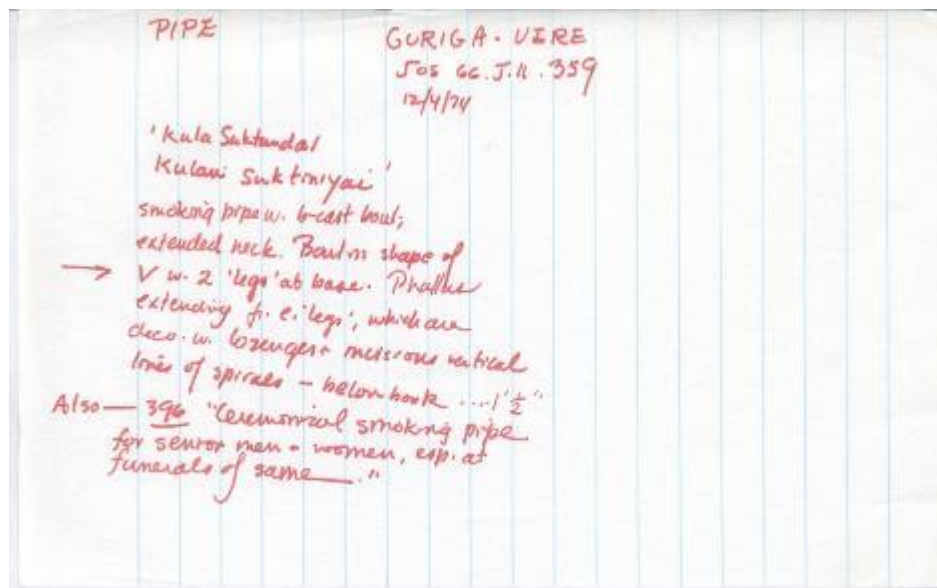 PIPE
GURIGA - VERE
Jos 66.J.11.359
12/4/74
'Kula Suktundal
Kulani Suktiniyai'
smoking pipe w. b-cast bowl;
extended neck. Bowl in shape of
→ V w. 2 'legs' at base. Phallus
extending fr. 'legs', which are
deco. w. lozenges + incisions vertical
lines of spirals - below ... 1 ½"
Also — 396 "Ceremonial smoking pipe
for senior men + women, esp. at
funerals of same ___."